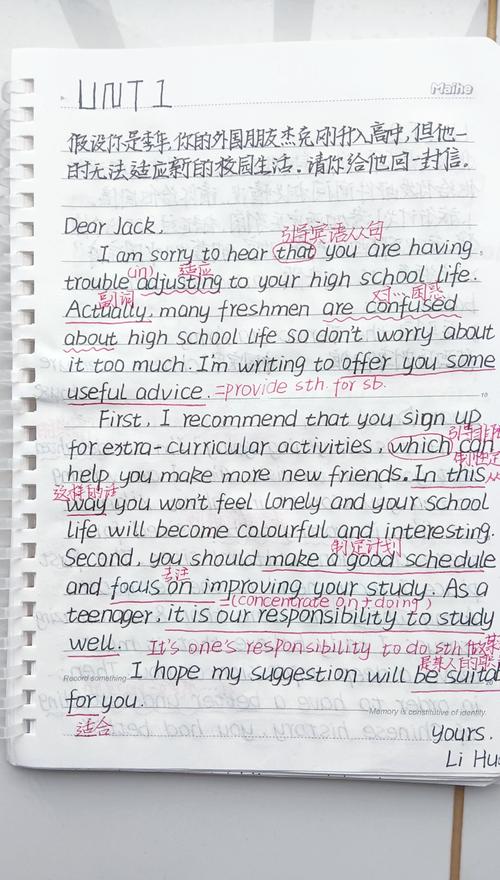 UNIT 1
Maihe
假设你是李华,你的外国朋友杰克刚升入高中,但他一
时无法适应新的校园生活。请你给他回一封信。
Dear Jack,
引导宾语从句
I am sorry to hear that you are having
(in) 适应
trouble adjusting to your high school life.
副词 对…困惑
Actually, many freshmen are confused
about high school life so don't worry about
it too much. I'm writing to offer you some
useful advice. =provide sth. for sb.
First, I recommend that you sign up
引导非
for extra-curricular activities, which can
help you make more new friends. In this
这样的话
way you won't feel lonely and your school
life will become colourful and interesting.
制定计划
Second, you should make a good schedule
专注
and focus on improving your study. As a
=(concentrate on + doing)
teenager, it is our responsibility to study
well. It's one's responsibility to do sth 做某
是某人的
Record something I hope my suggestion will be
for you.
Memory is constitutive of identity.
适合
Yours,
Li